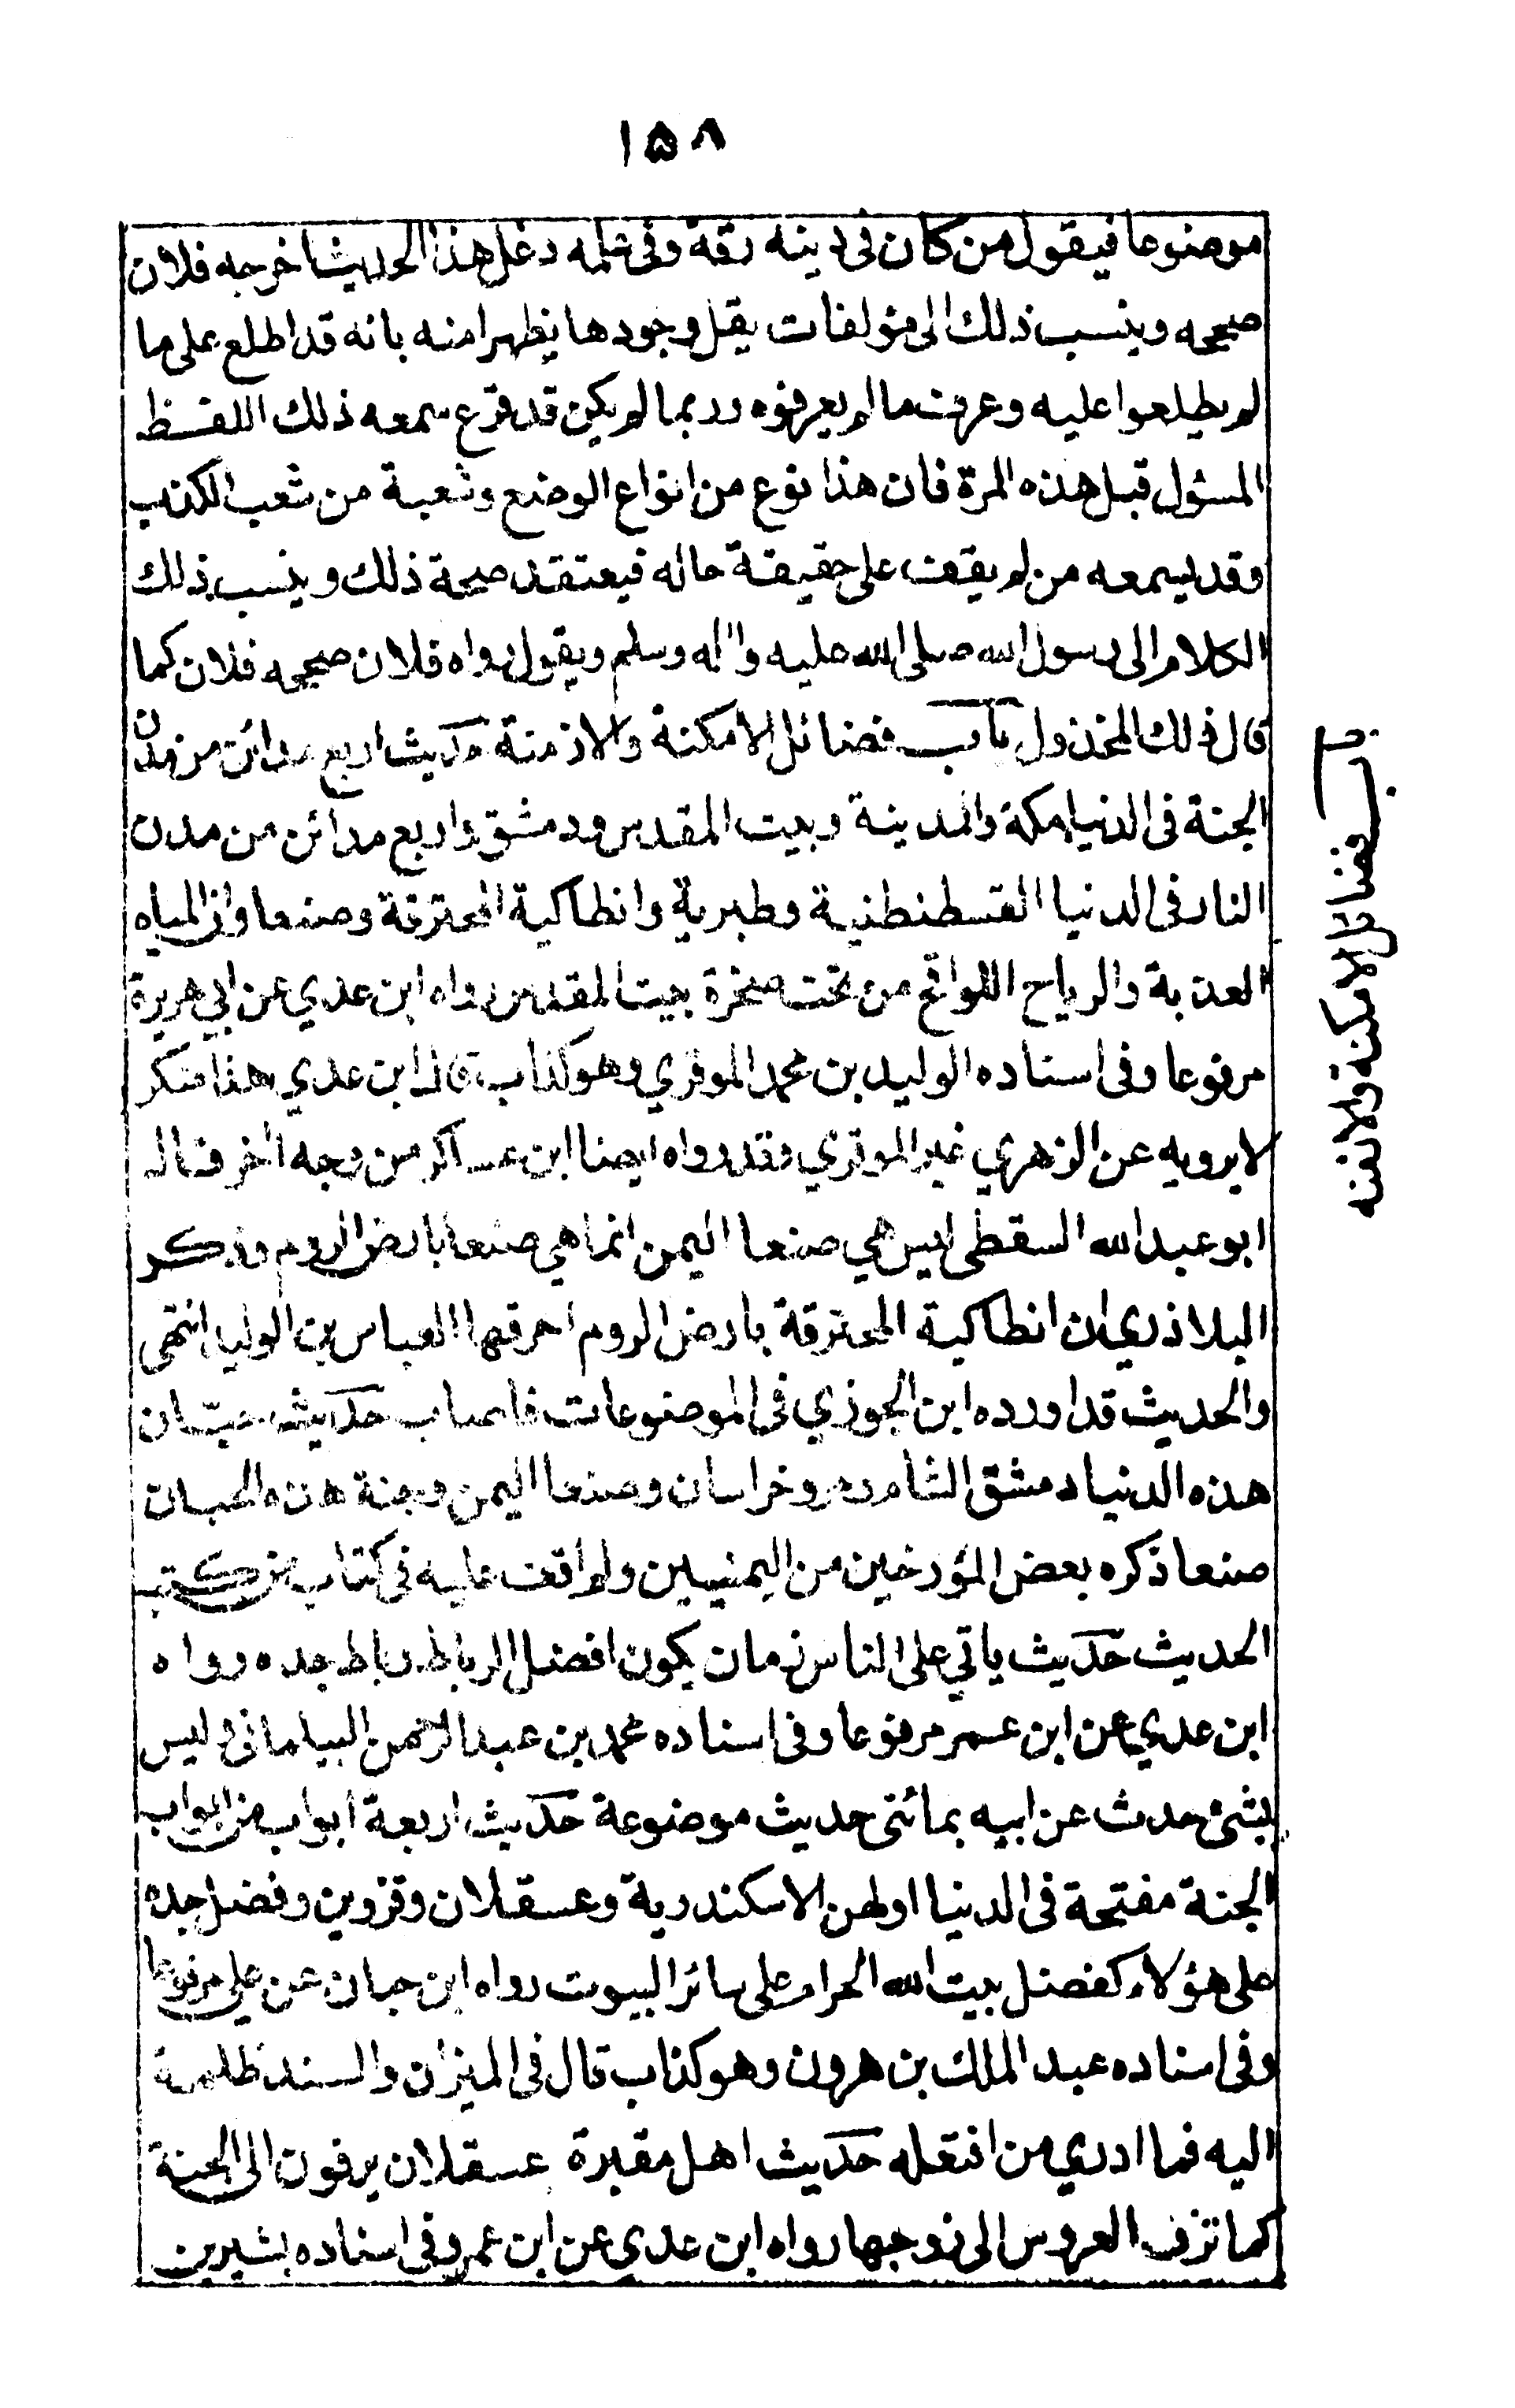 ١٥٨
موضوعا فيقول من كان فى دينه رقة وفى علمه دغل هذا الحديث اخرجه فلان
صححه وينسب ذلك الى مؤلفات يقل وجودها يظهر امنه بانه قد اطلع على ما
لم يطلعوا عليه وعرف ما لم يعرفوه وربما لم يكن قد قرع سمعه ذلك اللفظ
المسئول قبل هذه المرة فان هذا نوع من انواع الوضع وشعبة من شعب الكذب
وقد يسمعه من لم يقف على حقيقة حاله فيعتقد صحة ذلك وينسب ذلك
الكلام الى رسول الله صلى الله عليه واله وسلم ويقول رواه فلان صححه فلان كما
قال ذلك المخذول باب فضائل الامكنة والازمنة حديث اربع مدائن من مدن
الجنة فى الدنيا مكة والمدينة وبيت المقدس ودمشق واربع مدائن من مدن
النار فى الدنيا القسطنطنية وطبرية وانطاكية المحترقة وصنعا وان المياه
العذبة والرياح اللواقح من تحت صخرة بيت المقدس رواه ابن عدي عن ابي هريرة
مرفوعا وفى اسناده الوليد بن محمد الموقري وهو كذاب قال ابن عدي هذا منكر
لا يرويه عن الزهري غير الموقري وقد رواه ايضا ابن عساكر من وجه اخر قال
ابو عبد الله السقطى ليس هي صنعا اليمن انما هي صنعا بارض الروم وذكر
البلاذري ان انطاكية المحترقة بارض الروم احرقها العباس بن الوليد انتهى
والحديث قد اورده ابن الجوزي فى الموضوعات فاصاب حديث جبّان
هذه الدنيا دمشق الشام ومرو خراسان وصنعا اليمن وجنة هذه الجبان
صنعا ذكره بعض المؤرخين من اليمنيين ولم اقف عليه فى كتاب من كتب
الحديث حديث ياتي على الناس زمان يكون افضل الرباط رباط جده رواه
ابن عدي عن ابن عمر مرفوعا وفى اسناده محمد بن عبد الرحمن البيلمانى وليس
بشئ حدث عن ابيه بمائتى حديث موضوعة حديث اربعة ابواب من ابواب
الجنة مفتحة فى الدنيا اولهن الاسكندرية وعسقلان وقزوين وفضل جده
على هؤلاء كفضل بيت الله الحرام على سائر البيوت رواه ابن حبان عن علي مرفوعا
وفى اسناده عبد الملك بن هرون وهو كذاب قال فى الميزان والسند ظلمة
اليه فما ادري من افتعله حديث اهل مقبرة عسقلان يزفون الى الجنة
كما تزف العروس الى زوجها رواه ابن عدي عن ابن عمر وفى اسناده بشير بن
باب فضائل الامكنة والازمنه